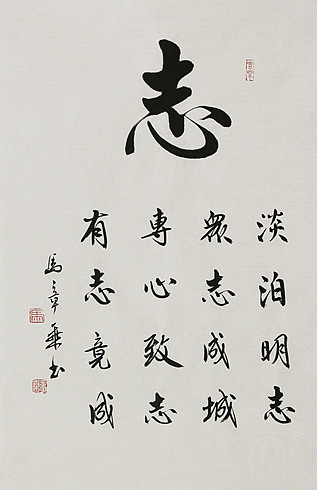 志
淡泊明志
眾志成城
專心致志
有志竟成
馬章乘书